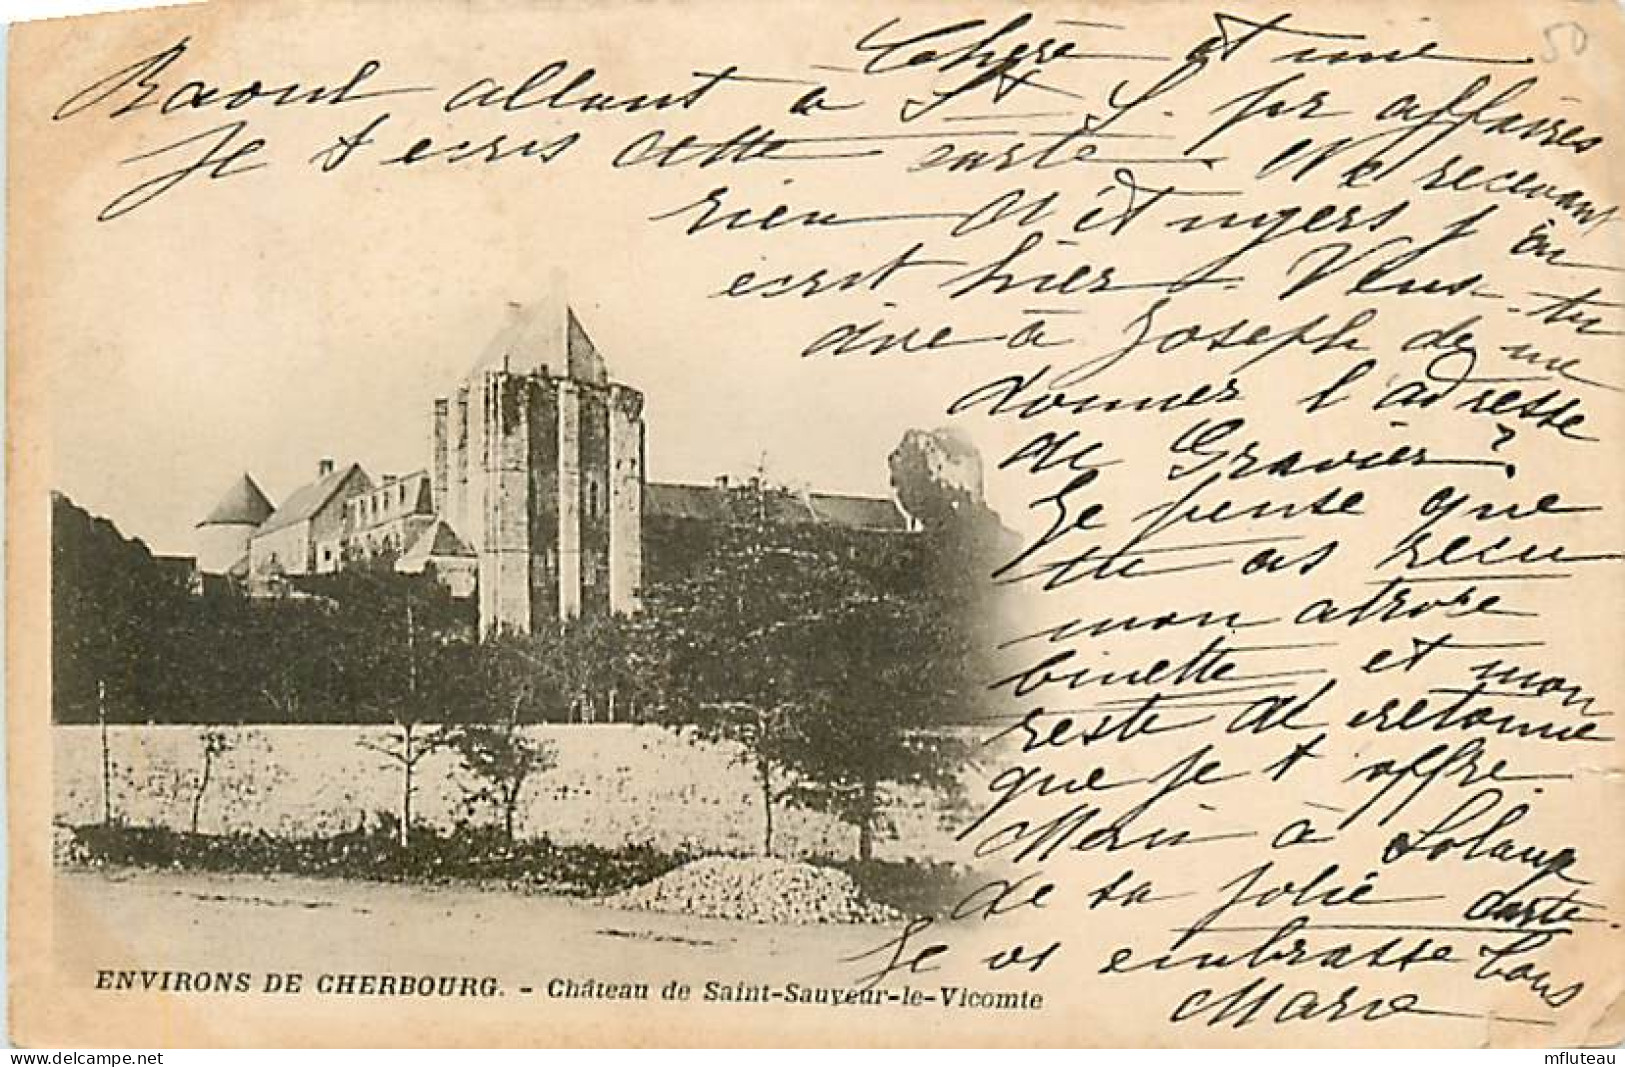 50
Chère et mie
Raoul allant à St S. pr affaires
Je t ecris cette carte. Ne recevant
rien d'Angers j'ai
ecrit hier. Veux-tu
dire à Joseph de me
donner l'adresse
de Gravier?
Je pense que
tu as recu
mon atroce
binette et mon
reste de
que je t offre.
Merci à Solange
de sa jolie carte.
Je vs embrasse tous
Marie
ENVIRONS DE CHERBOURG. - Château de Saint-Sauveur-le-Vicomte
mfluteau